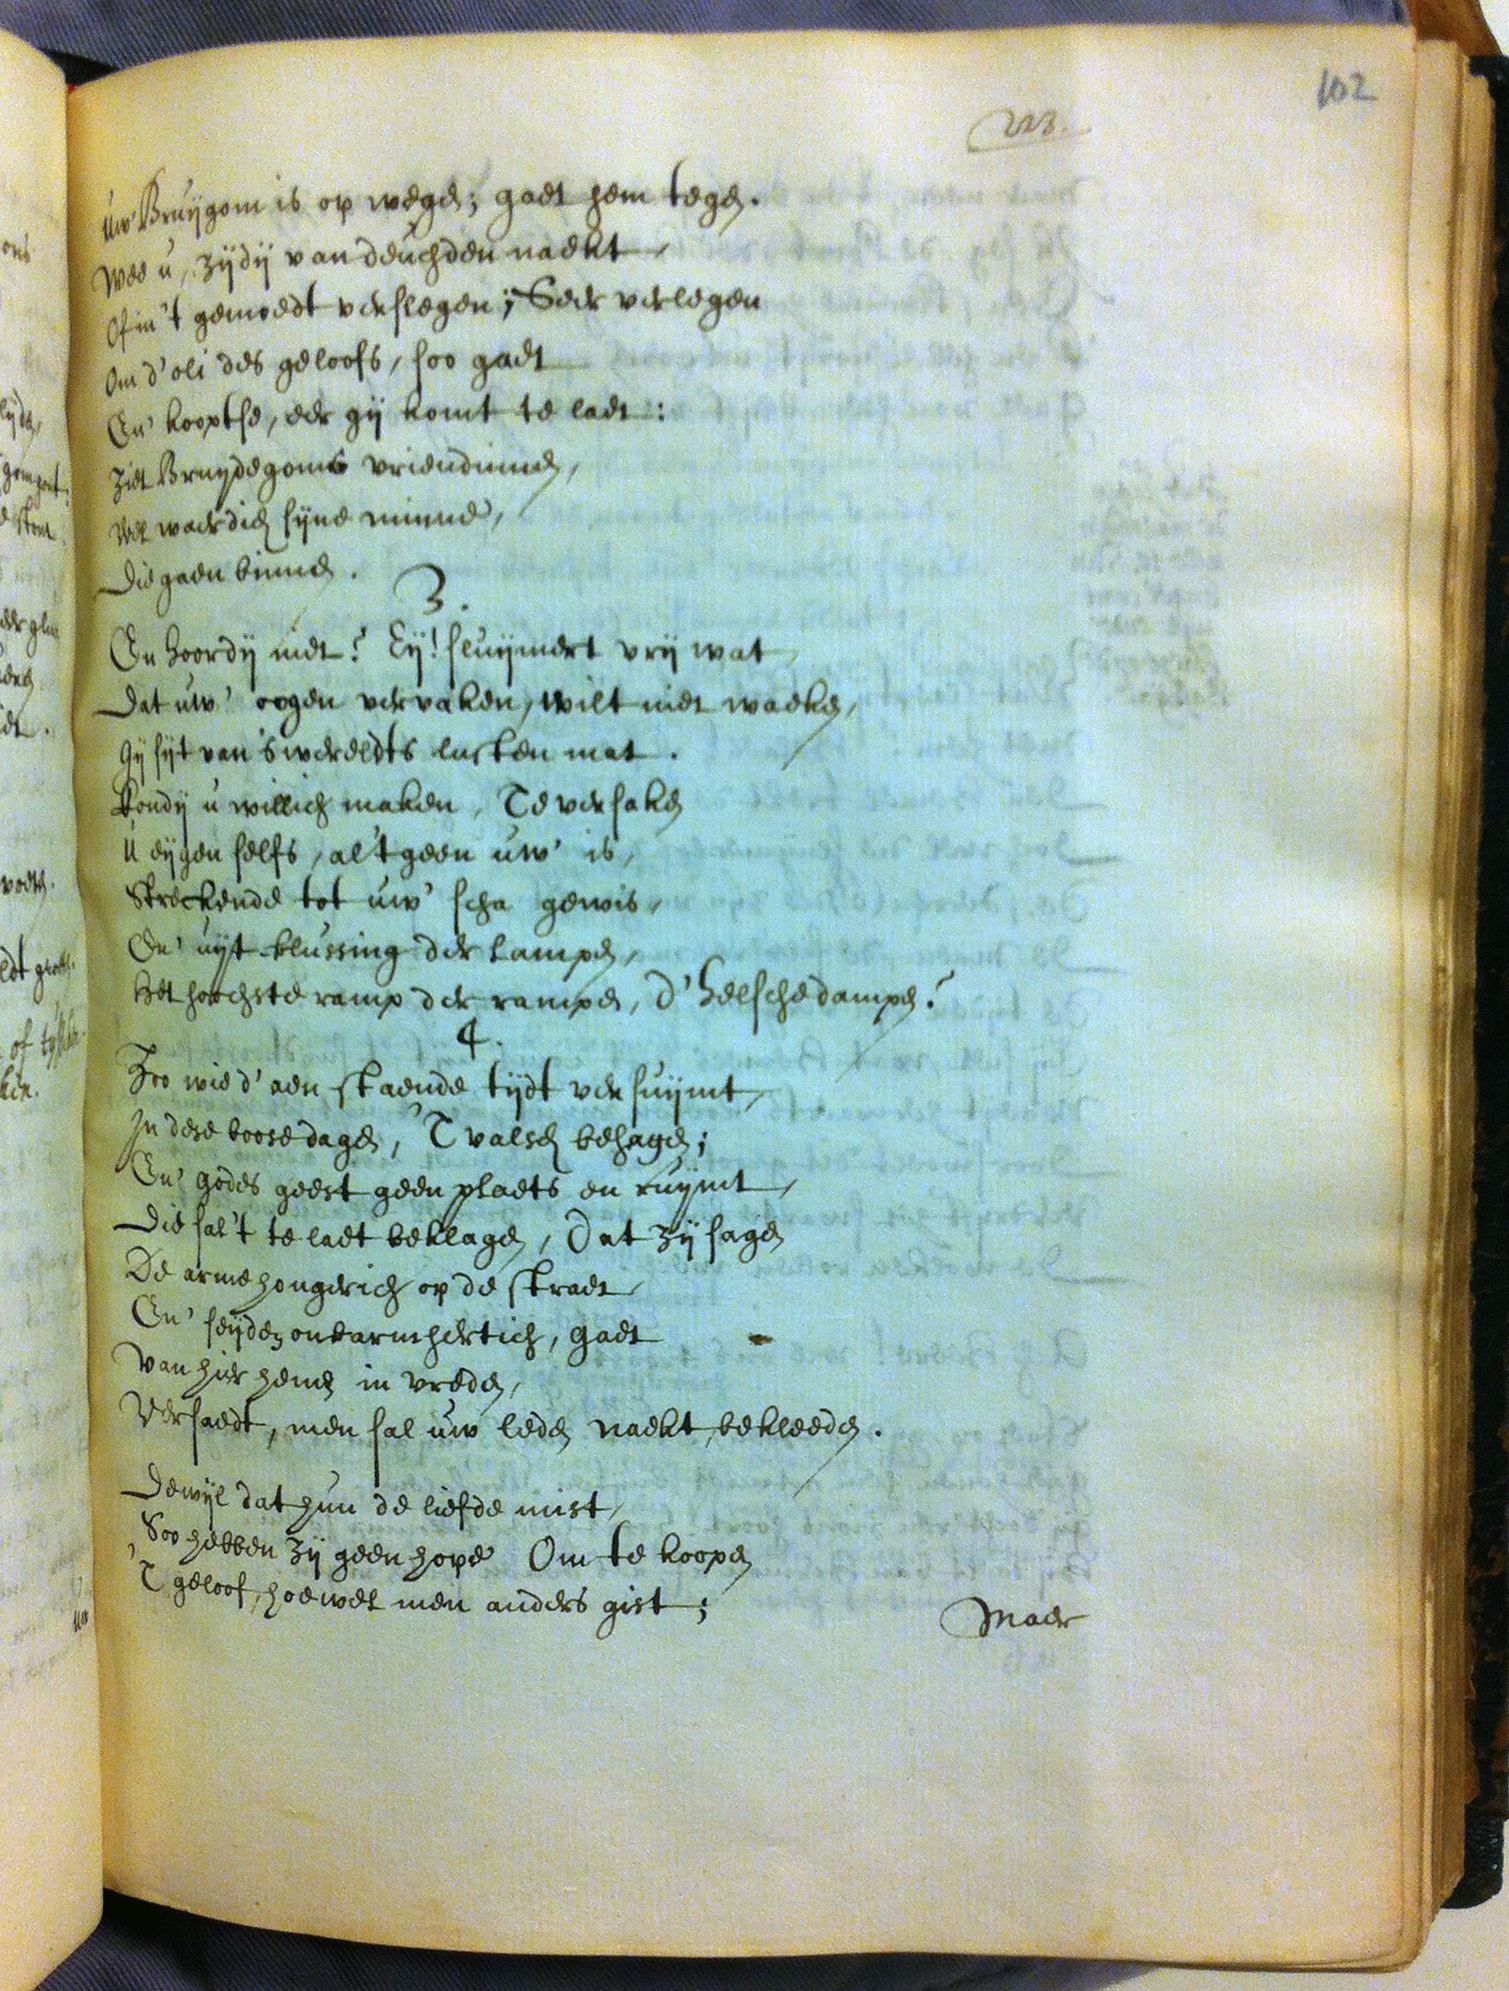 102
223.
Uw' Bruÿgom is op wegen; gaet hem tegen.
Wee u, zÿdÿ van deuchden naekt,
Of in 't gemoedt verslegen; Seer verlegen
Om d'oli des geloofs, soo gaet
En' kooptse, eer gÿ komt te laet:
Ziet Bruÿdegoms vriendinnen,
Wel waerdich sÿne minne,
Die gaen binnen.
3.
En hoordÿ niet? Eÿ! sluÿmert vrÿ wat,
Dat uw' oogen vervaken, wilt niet waeken,
Gÿ sÿt van 's wereldts lusten mat.
Kondÿ u willich maken, Te versaken
U eÿgen selfs, al 't geen uw' is,
Streckende tot uw' scha gewis,
En' uÿt-blussing der lampen,
Het hoochste ramp der rampen, d'helsche dampen?
4.
Zoo wie d'aenstaende tÿdt versuÿmt,
In dese boose dagen, 'T valsch behagen;
En' godes geest geen plaets en ruÿmt,
Die sal 't te laet beklagen, Dat zÿ sagen
De arme hongerich op de straet,
En' seÿden onbarmhertich, gaet
Van hier henen in vreden,
Versaedt, men sal uw leden naekt bekleeden.
Dewÿl dat hun de liefde mist,
Soo hebben zÿ geen hope Om te koopen
'T geloof, hoewel men anders gist;
Maer